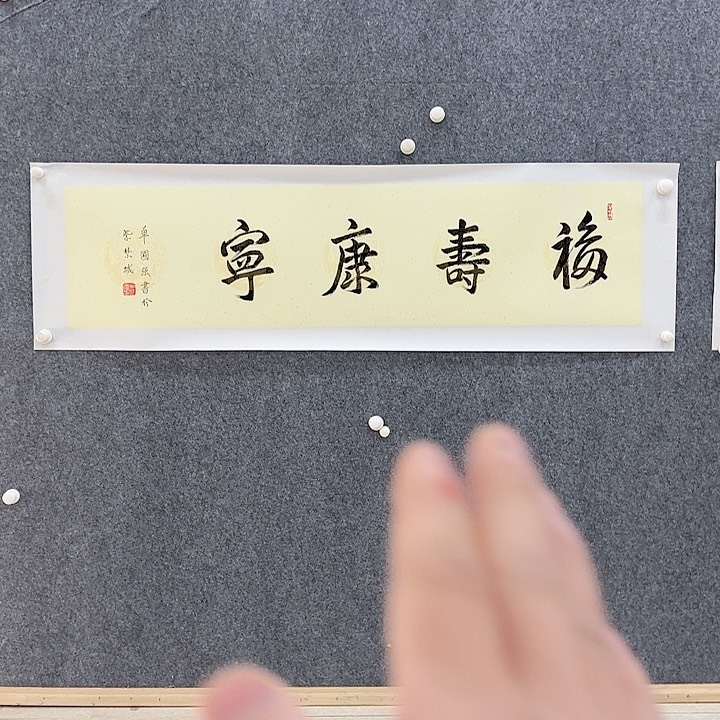 福壽康寧
國書於
紫禁城